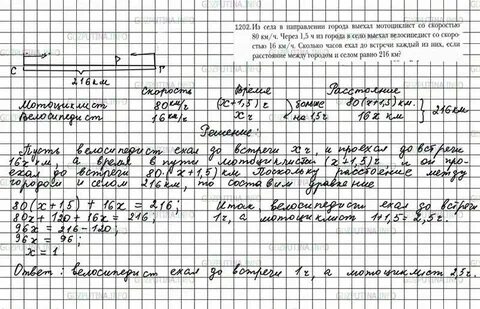 1202. Из села в направлении города выехал мотоциклист со скоростью
80 км/ч. Через 1,5 ч из города в село выехал велосипедист со скоро-
стью 16 км/ч. Сколько часов ехал до встречи каждый из них, если
расстояние между городом и селом равно 216 км?
С Г
216 км
Скорость Время Расстояние
Мотоциклист 80 км/ч (x+1,5) ч больше на 1,5 ч 80(x+1,5) км. 216 км
Велосипедист 16 км/ч x ч 16x км
Решение:
Пусть велосипедист ехал до встречи x ч, и проехал до встречи
16x км, а время в пути мотоциклиста (x+1,5) ч и он про-
ехал до встречи 80·(x+1,5) км. Поскольку расстояние между
городом и селом 216 км, то составим уравнение
80(x+1,5) + 16x = 216; Итак, велосипедист ехал до встречи
80x + 120 + 16x = 216; 1 ч, а мотоциклист 1+1,5 = 2,5 ч.
96x = 216 - 120;
96x = 96;
x = 1
Ответ: велосипедист ехал до встречи 1 ч, а мотоциклист 2,5 ч.
GDZPUTINA.INFO